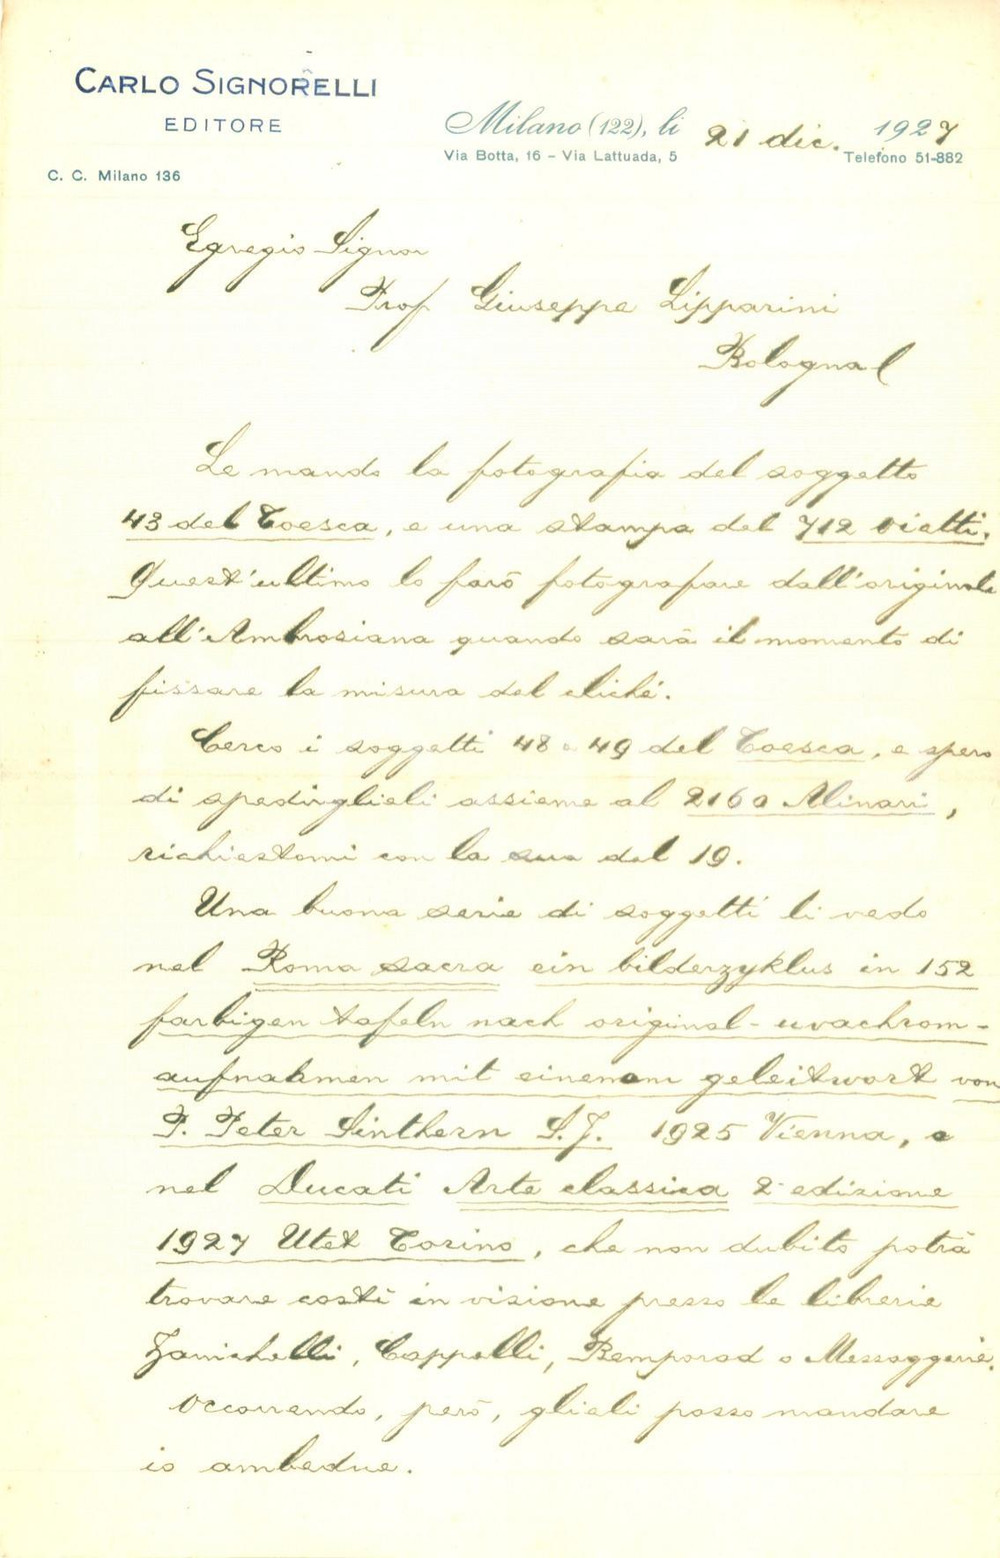 CARLO SIGNORELLI
EDITORE
C. C. Milano 136
Milano (122), li 21 dic. 1927
Via Botta, 16 - Via Lattuada, 5 Telefono 51-882
Egregio Signor
Prof Giuseppe Lipparini
Bologna
Le mando la fotografia del soggetto
43 del Toesca, e una stampa del 712
Quest'ultimo lo farò fotografare dall'originale
all'Ambrosiana quando sarà il momento di
fissare la misura del cliché.
Cerco i soggetti 48 e 49 del Toesca, e spero
di spedirglieli assieme al 2160 Alinari,
richiestomi con la sua del 19.
Una buona serie di soggetti li vedo
nel Roma sacra ein bilderzyklus in 152
farbigen tafeln nach original-uvachrom-
aufnahmen mit einem geleitwort von
P. Peter Sinthern S.J. 1925 Vienna, e
nel Ducati Arte classica 2ª edizione
1927 Utet Torino, che non dubito potrà
trovare costì in visione presso le librerie
Zanichelli, Cappelli, Bemporad o Messaggerie.
Occorrendo, però, glieli posso mandare
io ambedue.